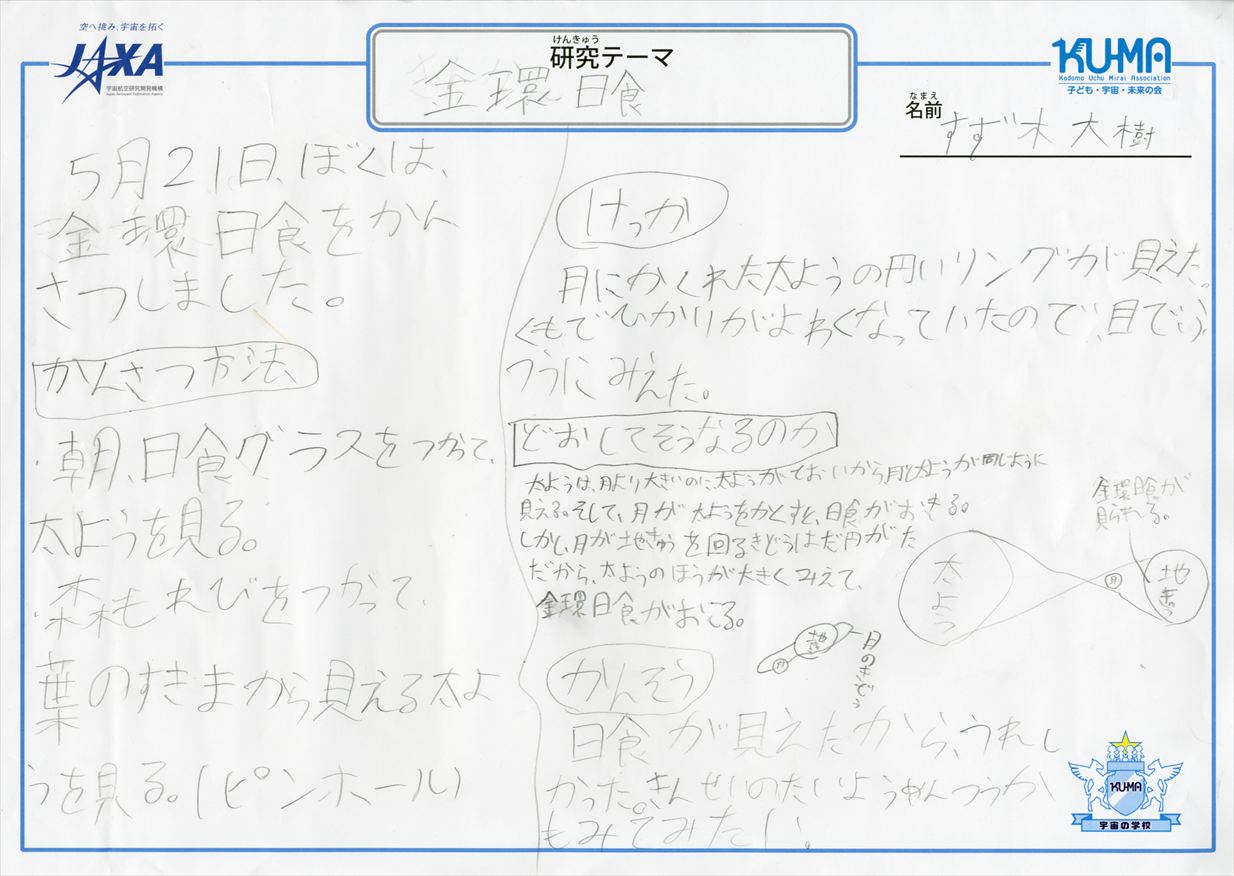 空へ挑み、宇宙を拓く
JAXA
宇宙航空研究開発機構
Japan Aerospace Exploration Agency
けんきゅう
研究テーマ
金環日食
KU-MA
Kodomo Uchu Mirai Association
子ども・宇宙・未来の会
なまえ
名前
すず木 大樹
5月21日、ぼくは、
金環日食をかん
さつしました。
かんさつ方法
・朝、日食グラスをつかって、
太ようを見る。
・森もれびをつかって、
葉のすきまから見える太よ
うを見る。(ピンホール)
けっか
月にかくれた太ようの円いリングが見えた。
くもでひかりがよわくなっていたので、目でふ
つうにみえた。
どおしてそうなるのか
太ようは、月より大きいのに、太ようがとおいから月と太ようが同じように
見える。そして、月が太ようをかくすと、日食がおきる。
しかし、月が地きゅうを回るきどうはだ円がた
だから、太ようのほうが大きくみえて、
金環日食がおこる。
金環日食が
見られる。
太よう
月
地きゅう
月
地
月のきどう
かんそう
日食が見えたから、うれし
かった。きんせいのたいようめんつうか
もみてみたい!
KUMA
宇宙の学校